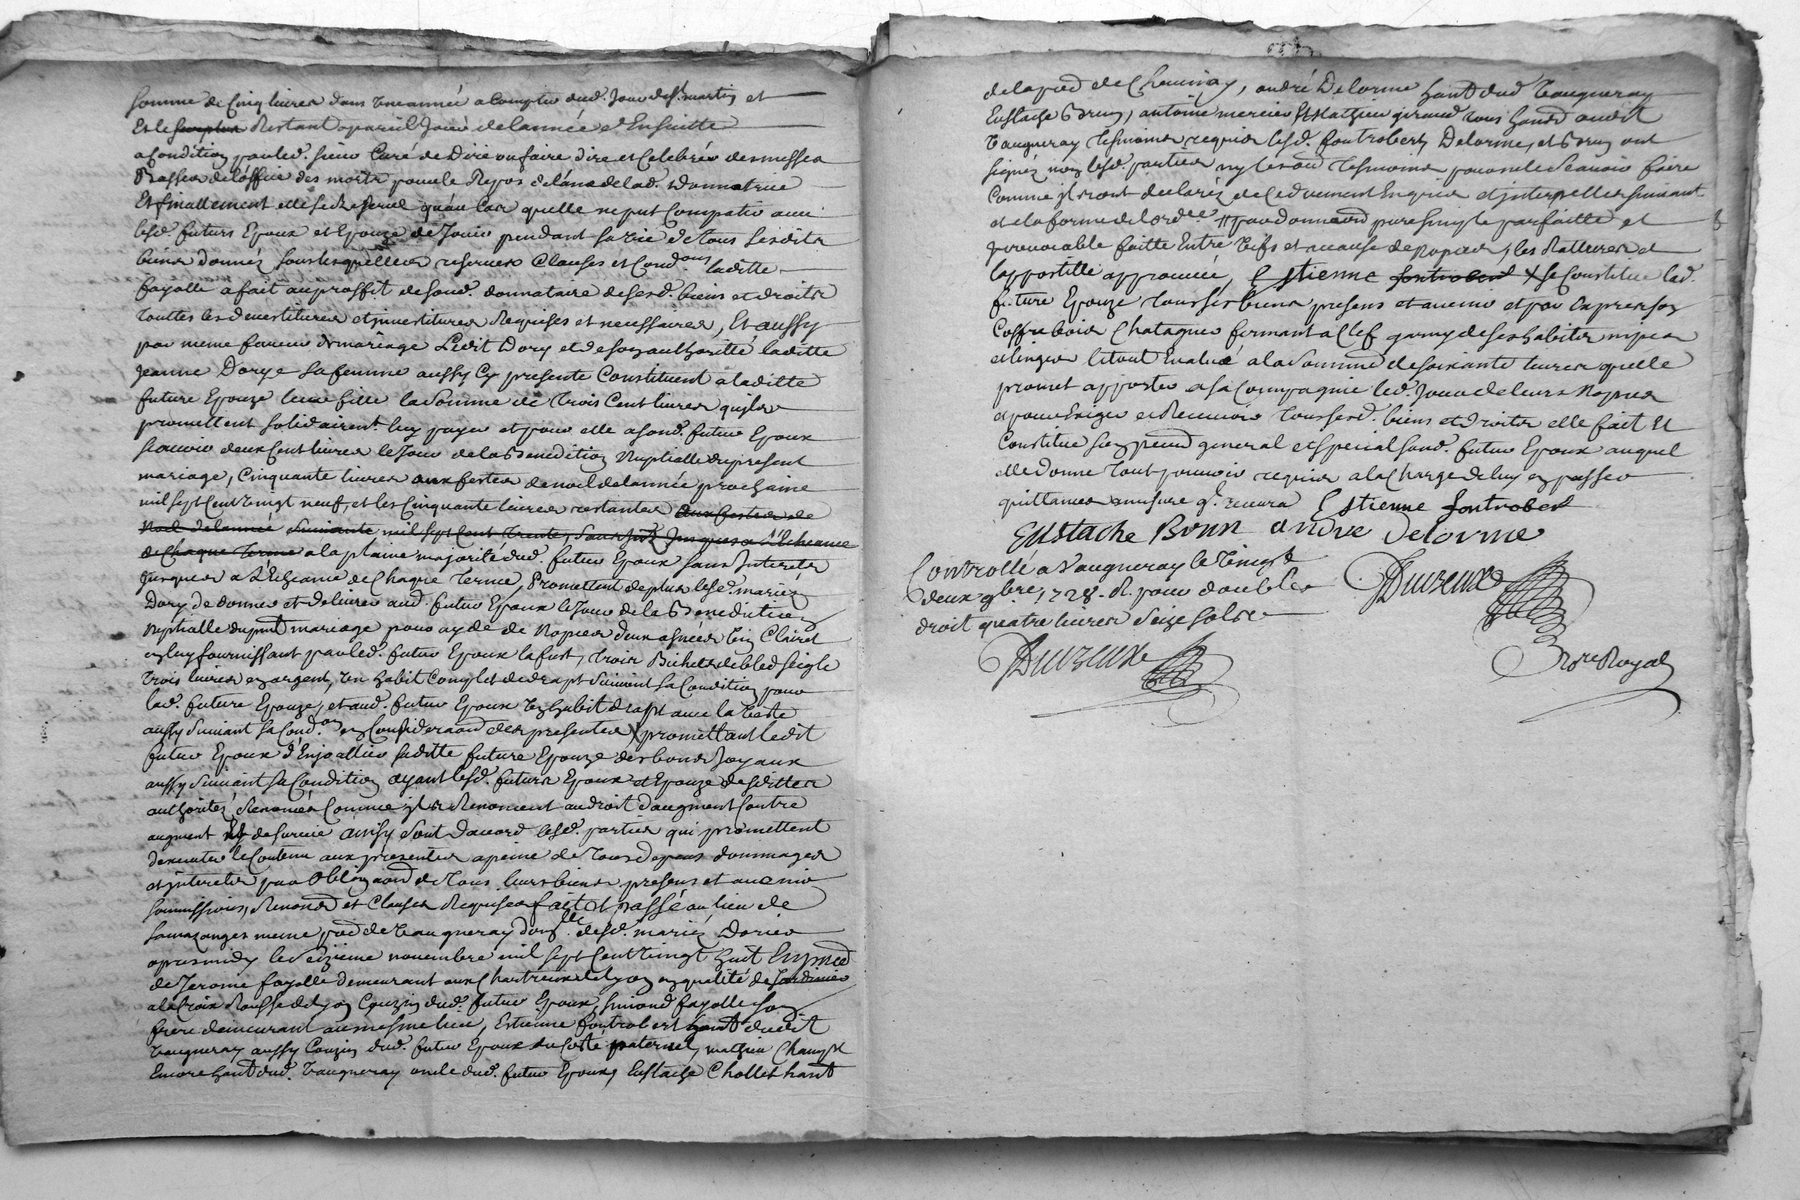 somme de Cinq livres dans une année a Compter dud. Jour de st martin et
Et le Restant a pareil Jour de lannée d Ensuitte
a Condition par led. sieur Curé de Dire ou faire dire et Celebrer des messes
Basses de loffice des morts pour le Repos de lame de lad. donnatrice
Et finallement elle se Reserve quau Cas quelle ne put Compatir avec
lesd. futurs Epoux et Epouze de Jouir pendant sa vie de tous sesdits
biens donnés sous lesquelles reserves Clauses et Cond.ons laditte
fayolle a fait au proffit de sond. donnataire de sesd. biens et droits
touttes les devestitures et jnvestitures Requises et necessaires, Et aussy
par meme faveur de mariage Ledit Dory et de son authorité laditte
jeanne Dorye sa femme aussy Cy presente Constituent a laditte
future Epouze leur fille la somme de trois Cent livres quils
promettent solidairemt. luy payer et pour elle a sond. futur Epoux
scavoir deux Cent livres le Jour de la Benediction Nuptialle du present
mariage, Cinquante livres aux festes de noel de lannée prochaine
mil sept Cent vingt neuf, et les Cinquante livres restantes aux festes de
Noel de lannée suivante mil sept Cent trente, sans jnt. Jusques a Lecheance
de Chaque terme a la plaine majorité dud. futur Epoux sans Interets
Jusques a L'Echeance de Chaque terme, Promettent de plus lesd. mariés
Dory de donner et delivrer aud. futur Epoux le Jour de la Benediction
Nuptialle du pnt mariage pour ayde de Nopces deux asnées vin Clairet
en luy fournissant par led. futur Epoux la fust, trois Bichets de bled seigle
trois livres en argent, un habit Complet de drapt suivant sa Condition pour
lad. future Epouze, et aud. futur Epoux un habit drapt avec la veste
aussy suivant sa Cond.on en Consideraon des presentes X promettant ledit
futur Epoux d'Enjoallier saditte future Epouze des bons Joyaux
aussy suivant sa Condition ayant lesd. futurs Epoux et Epouze desdittes
authorités Renoncés Comme ils Renoncent au droit daugment Contre
augment et de survie ainsy sont daccord lesd. parties qui promettent
dexecuter le Contenu aux presentes a peine de tous depens dommages
et jnterets par obligaon de tous leurs biens presens et avenir
soumissions, Renon.on et Clauses Requises fait et passé au lieu de
meme par de Vaugneray domlle desd. mariés Dories
apres midy le seizieme novembre mil sept Cent vingt huit En pnce
de Jerome fayolle demeurant aux Chartreux de Lyon en qualité de Jardinier
a la Croix Rousse de Lyon Couzin dud. futur Epoux, simond fayolle son
frere demeurant au mesme lieu, Estienne fontrobert habt dudit
Vaugneray aussy Couzin dud. futur Epoux du Costé paternel, mathieu
Encore habt dud. Vaugneray oncle dud. futur Epoux, Eustache Chollet habt
de la p.sse de Chevinay, andré Delorme habt dud. Vaugneray
Eustache Brun, antoine mercier Et Mathieu giraud tous habts audit
Vaugneray temoins requis lesd. fontrobert, Delorme, et Brun ont
signez non lesd. parties ny les autres temoins pour ne le scavoir faire
Comme jls ront declarés de Ce duement Enquis et jnterpellés suivant
et a la forme de lord.ce // par donnaon pure simple parfaitte et
jrrevocable faitte Entre vifs et a cause de Nopces, les Rattures et
lappostille approuvée, Estienne fontrobert X se Constitue lad.
future Epouze tous ses biens presens et avenir et par Expres son
Coffre bois Chatagner fermant a Clef garny de ses habits nipes
et linges le tout Evalué a la somme de soixante livres quelle
promet apporter a sa Compagnie led. Jour de leurs Nopces
et pour Exiger et Recevoir tous sesd. biens et droits elle fait Et
Constitue son preur general et special sond. futur Epoux auquel
elle donne tout pouvoir requis a la Charge de luy en passer
quittances a mesure ql. recevra Estienne fontrobert
Eustache Brun andre Delorme
Controllé a Vaugneray le vingt
deux 9bre 1728. R. pour double
droit quatre livres seize sols
Nre Royal